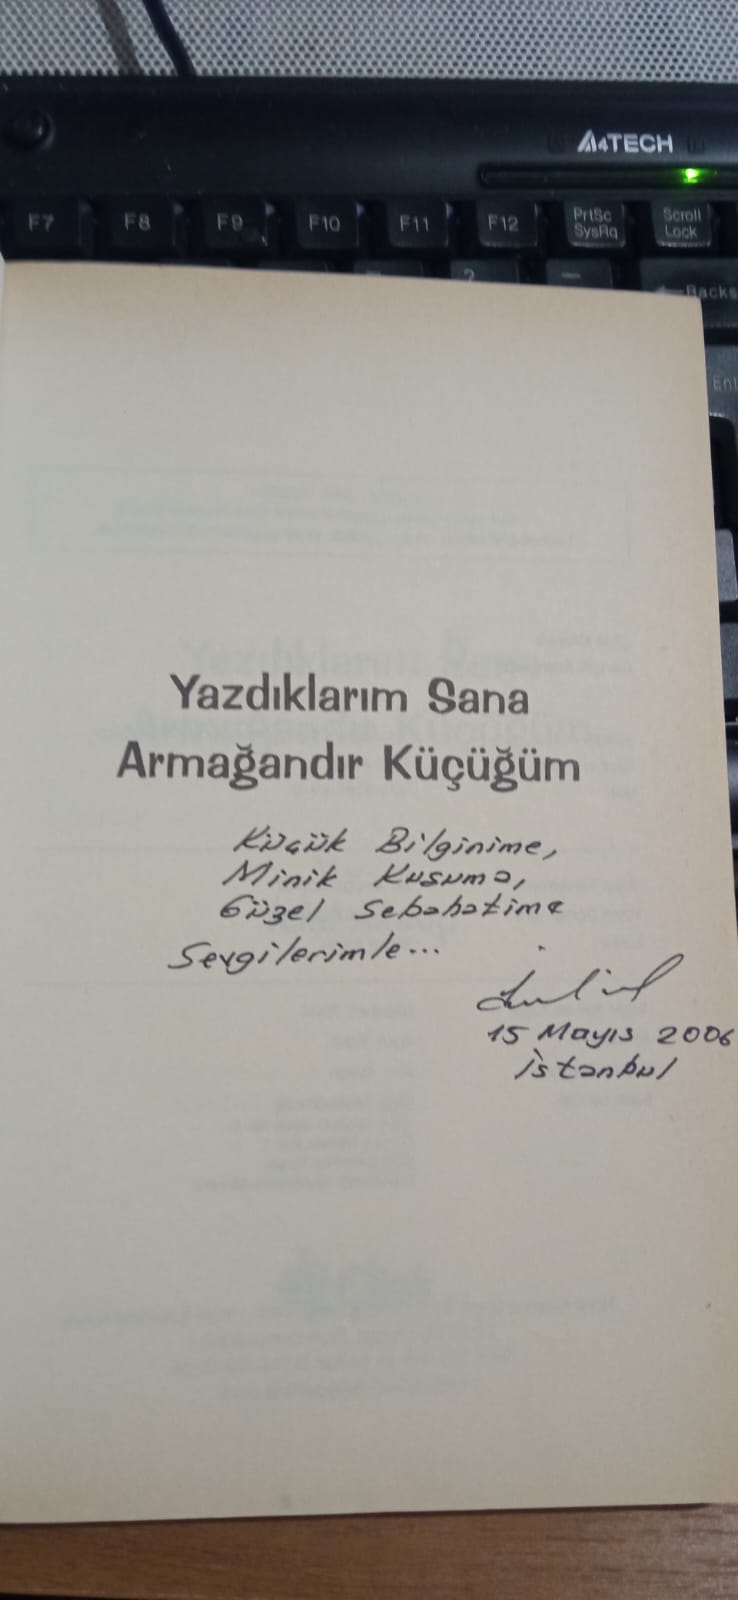 A4TECH
F7 F8 F9 F10 F11 F12 PrtSc SysRq Scroll Lock
?
Backs
Ent
Yazdıklarım Sana
Armağandır Küçüğüm
Küçük Bilginime,
Minik Kuşuma,
Güzel Sebahatime
Sevgilerimle...
15 Mayıs 2006
İstanbul